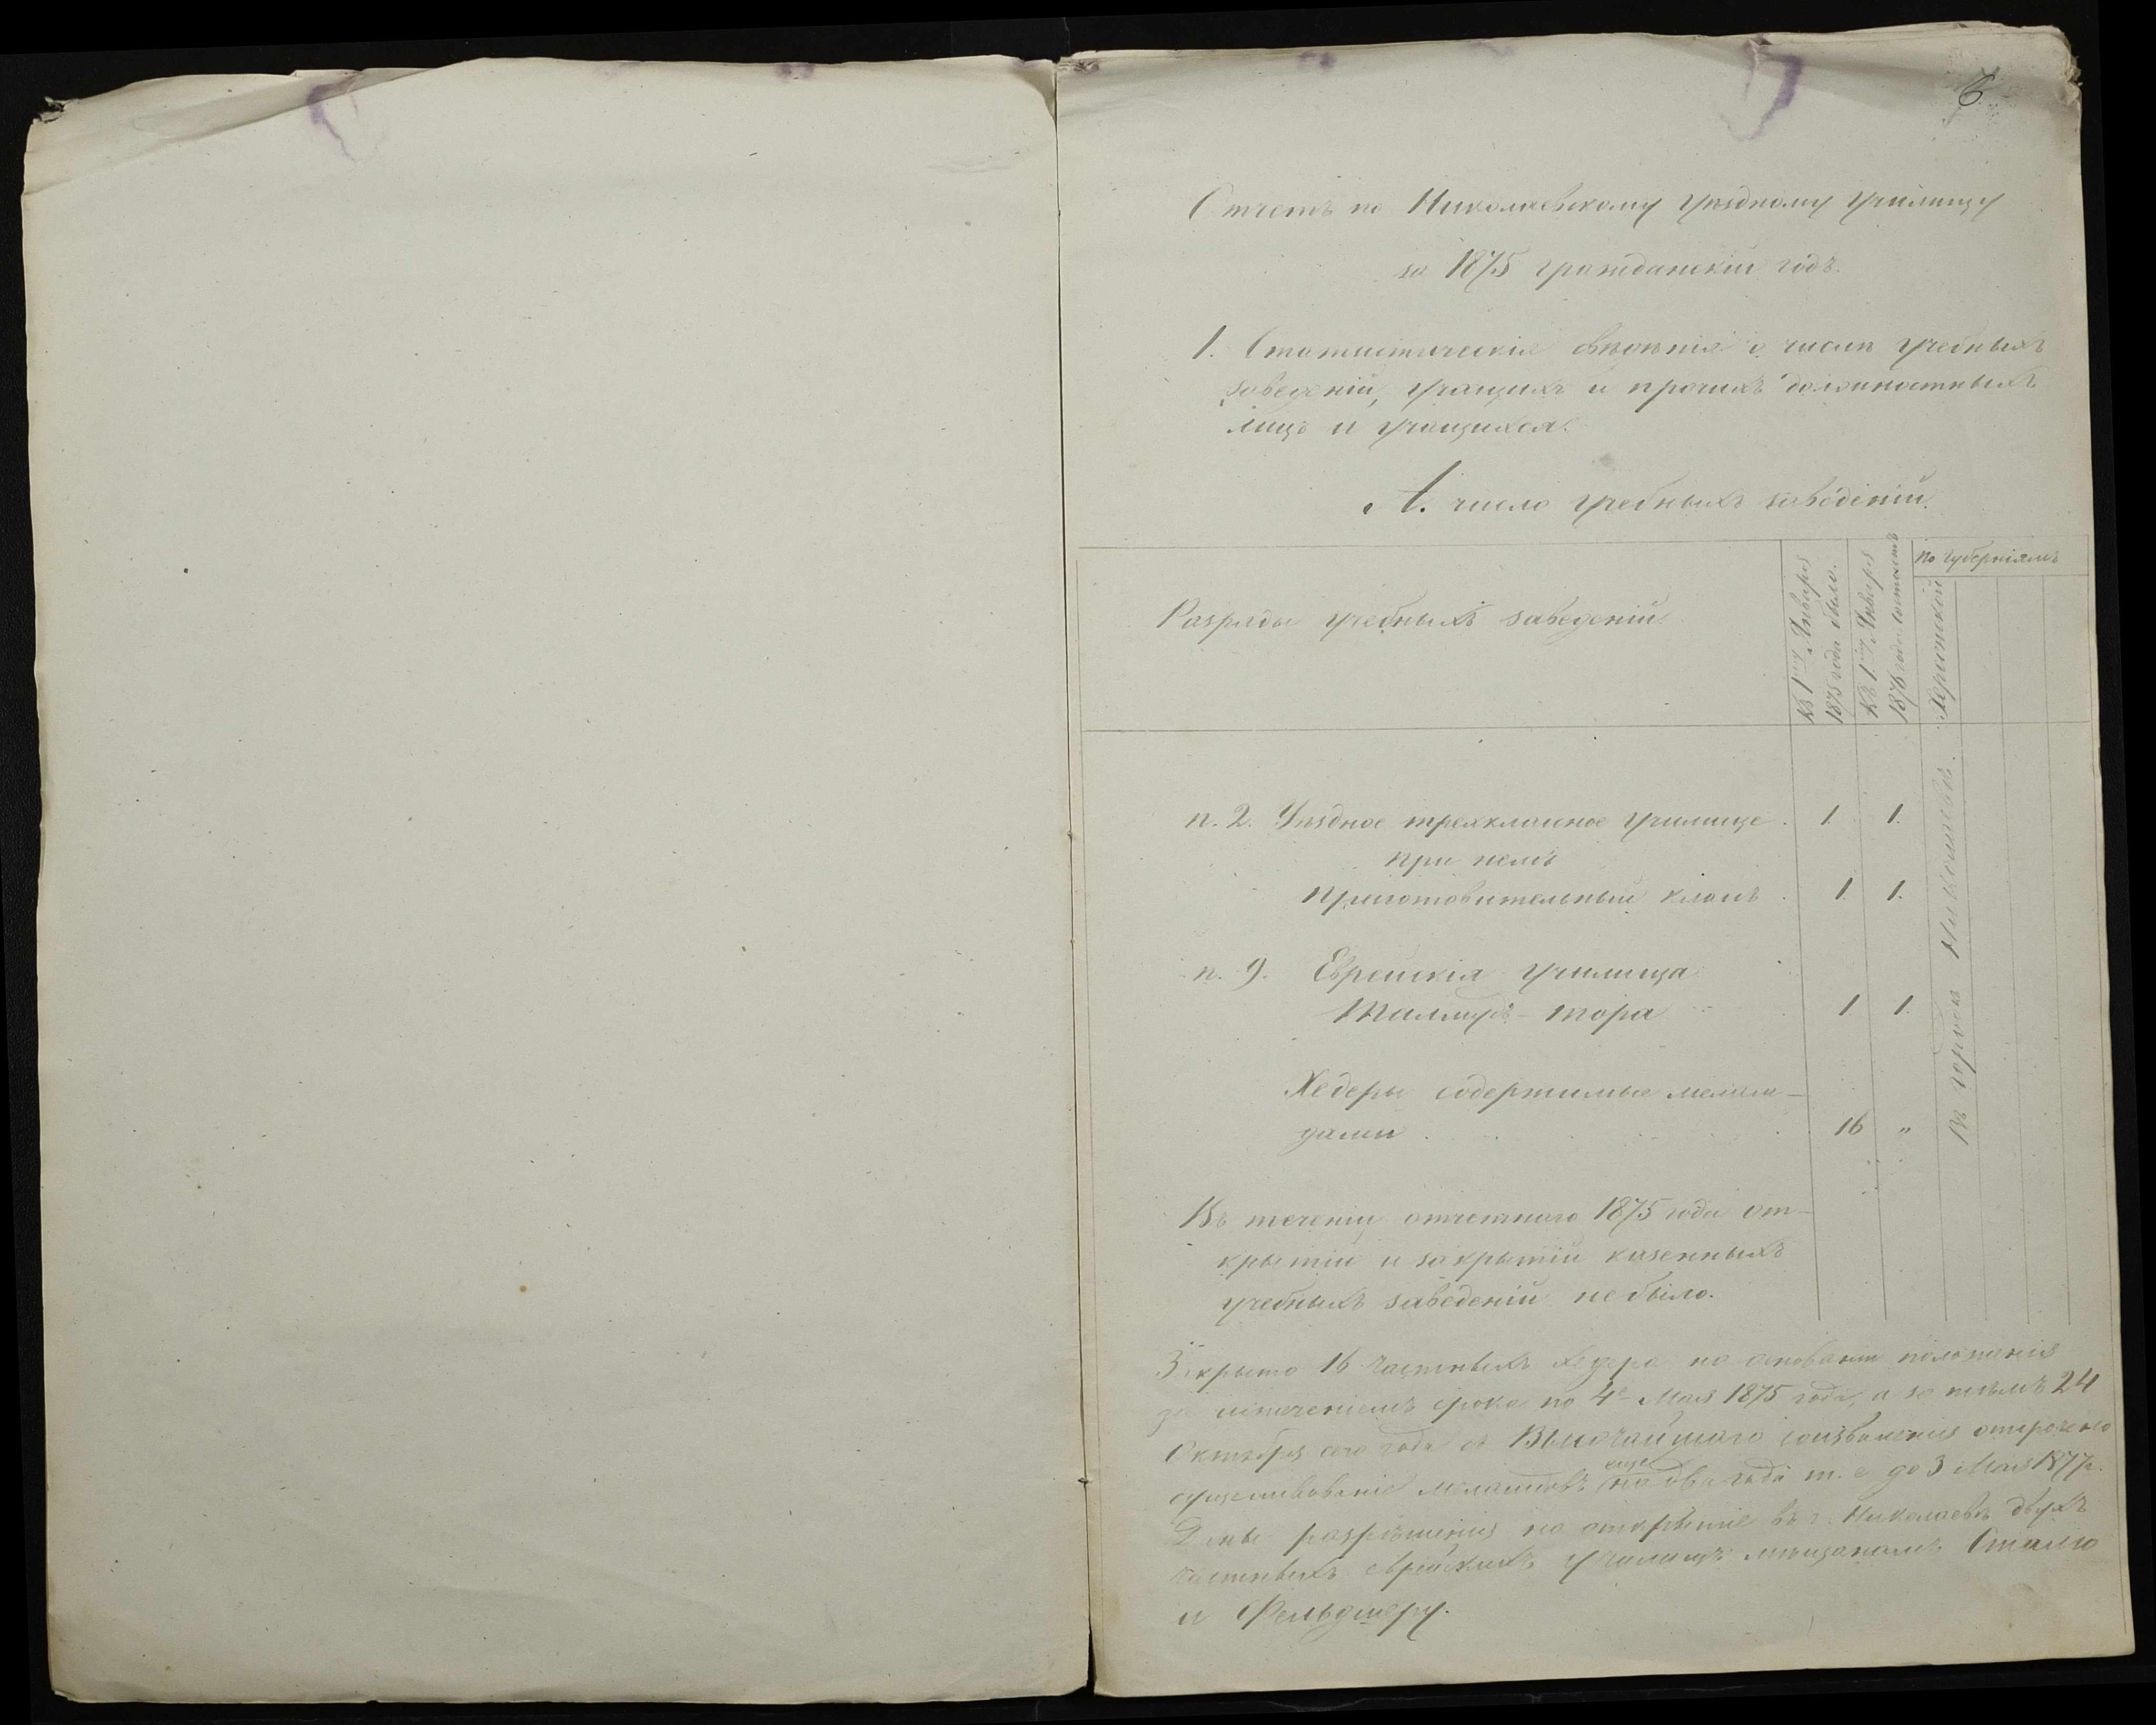 6
Отчетъ по Николаевскому Уѣздному Училищу
за 1875 гражданскій годъ.
1. Статистическія свѣдѣнія о числѣ учебныхъ
заведеній, учащихъ и прочихъ должностныхъ
лицъ и учащихся.
А. число учебныхъ заведеній.
Разряды учебныхъ заведеній
Къ 1му Января
1875 года было.
Къ 1му Января
1876 года состоитъ
По губерніямъ
Херсонской
п. 2. Уѣздное трехклассное училище . 1. 1.
при немъ
Приготовительный классъ . 1 1.
п. 9. Еврейскія училища
Талмудъ-тора 1 1.
Хедеры содержимые мелам-
дами . 16 „
Въ городѣ Николаевѣ.
Въ теченіи отчетнаго 1875 года от-
крытій и закрытій казенныхъ
учебныхъ заведеній не было.
Закрыто 16 частныхъ хедера на основаніи положенія
за истеченіемъ срока по 4е Мая 1875 года, а за тѣмъ 24
Октября сего года съ Высочайшаго соизволенія отсрочено
существованіе меламдовъ еще на два года т. е. до 3 Мая 1877 г.
Даны разрѣшенія на открытіе въ г. Николаевѣ двухъ
частныхъ еврейскихъ училищъ мѣщанамъ
и Фельдшеру.